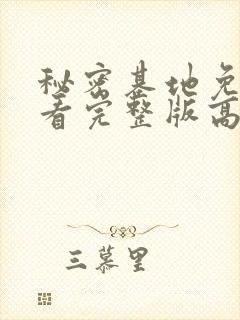 秘密基地免
看完整版高
三慕里